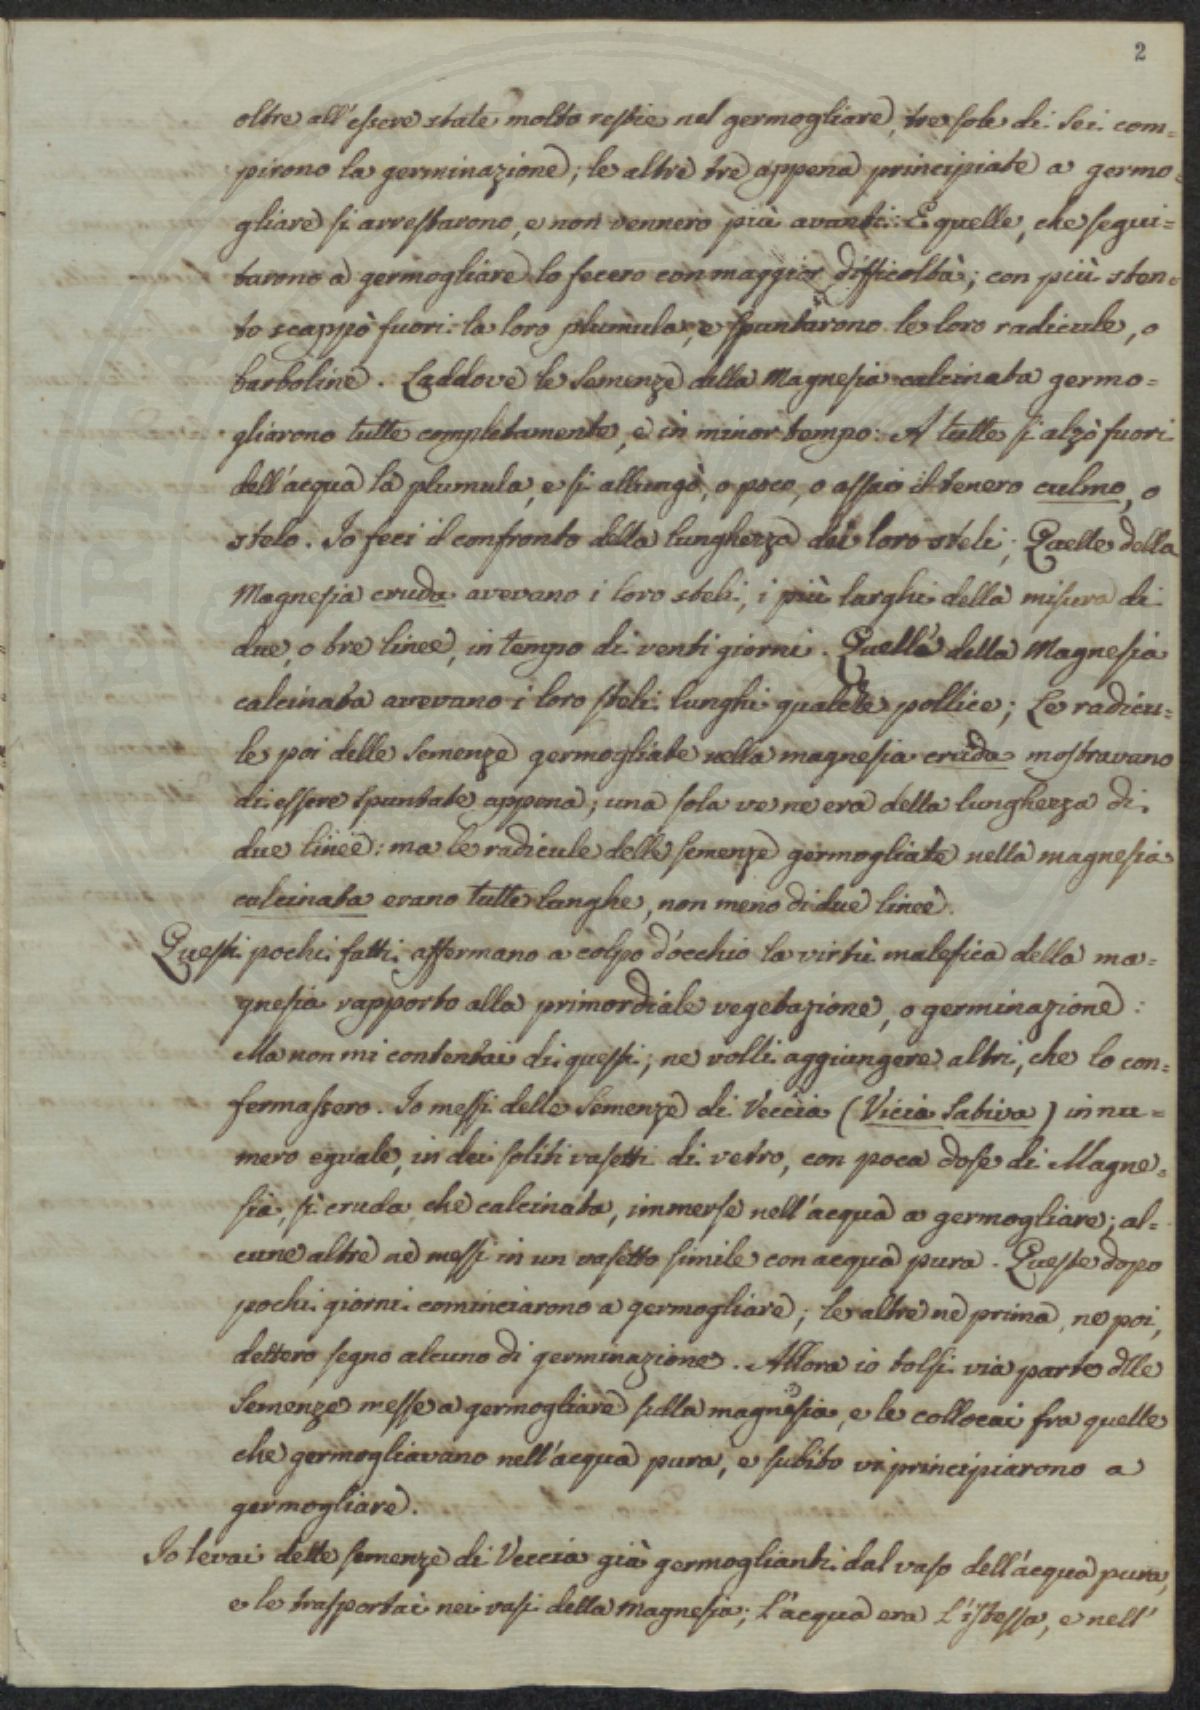 2
oltre all'essere state molto restie nel germogliare, tre sole di sei com=
pirono la germinazione; le altre tre appena principiate a germo=
gliare si arrestarono, e non vennero più avanti: E quelle, che segui=
tarono a germogliare lo fecero con maggior difficoltà; con più sten=
to scappò fuori la loro plumula, e spuntarono le loro radicule, o
barboline. Laddove le semenze della Magnesia calcinata germo=
gliarono tutte completamente, e in minor tempo: A tutte si alzò fuori
dell'acqua la plumula, e si allungò, o poco, o assai il tenero culmo, o
stelo. Io feci il confronto della lunghezza dei loro steli; Quelle della
Magnesia cruda avevano i loro steli, i più larghi della misura di
due, o tre linee, in tempo di venti giorni. Quelle della Magnesia
calcinata avevano i loro steli lunghi qualche pollice; Le radicu=
le poi delle semenze germogliate nella magnesia cruda mostravano
di essere spuntate appena; una sola ve ne era della lunghezza di
due linee: ma le radicule delle semenze germogliate nella magnesia
calcinata erano tutte lunghe, non meno di due linee.
Questi pochi fatti affermano a colpo d'occhio la virtù malefica della ma=
gnesia rapporto alla primordiale vegetazione, o germinazione:
Ma non mi contentai di questi; ne volli aggiungere altri, che lo con=
fermassero. Io messi delle semenze di Veccia (Vicia Sativa) in nu=
mero eguale, in dei soliti vasetti di vetro, con poca dose di Magne=
sia, sì cruda che calcinata, immerse nell'acqua a germogliare; al=
cune altre ne messi in un vasetto simile con acqua pura. Queste dopo
pochi giorni cominciarono a germogliare; le altre nè prima, ne poi,
dettero segno alcuno di germinazione. Allora io tolsi via parte dlle
Semenze messe a germogliare sulla magnesia, e le collocai fra quelle
che germogliavano nell'acqua pura, e subito vi principiarono a
germogliare.
Io levai dette semenze di Veccia già germoglianti dal vaso dell'acqua pura,
e le trasportai nei vasi della magnesia; l'acqua era l'istessa, e nell'